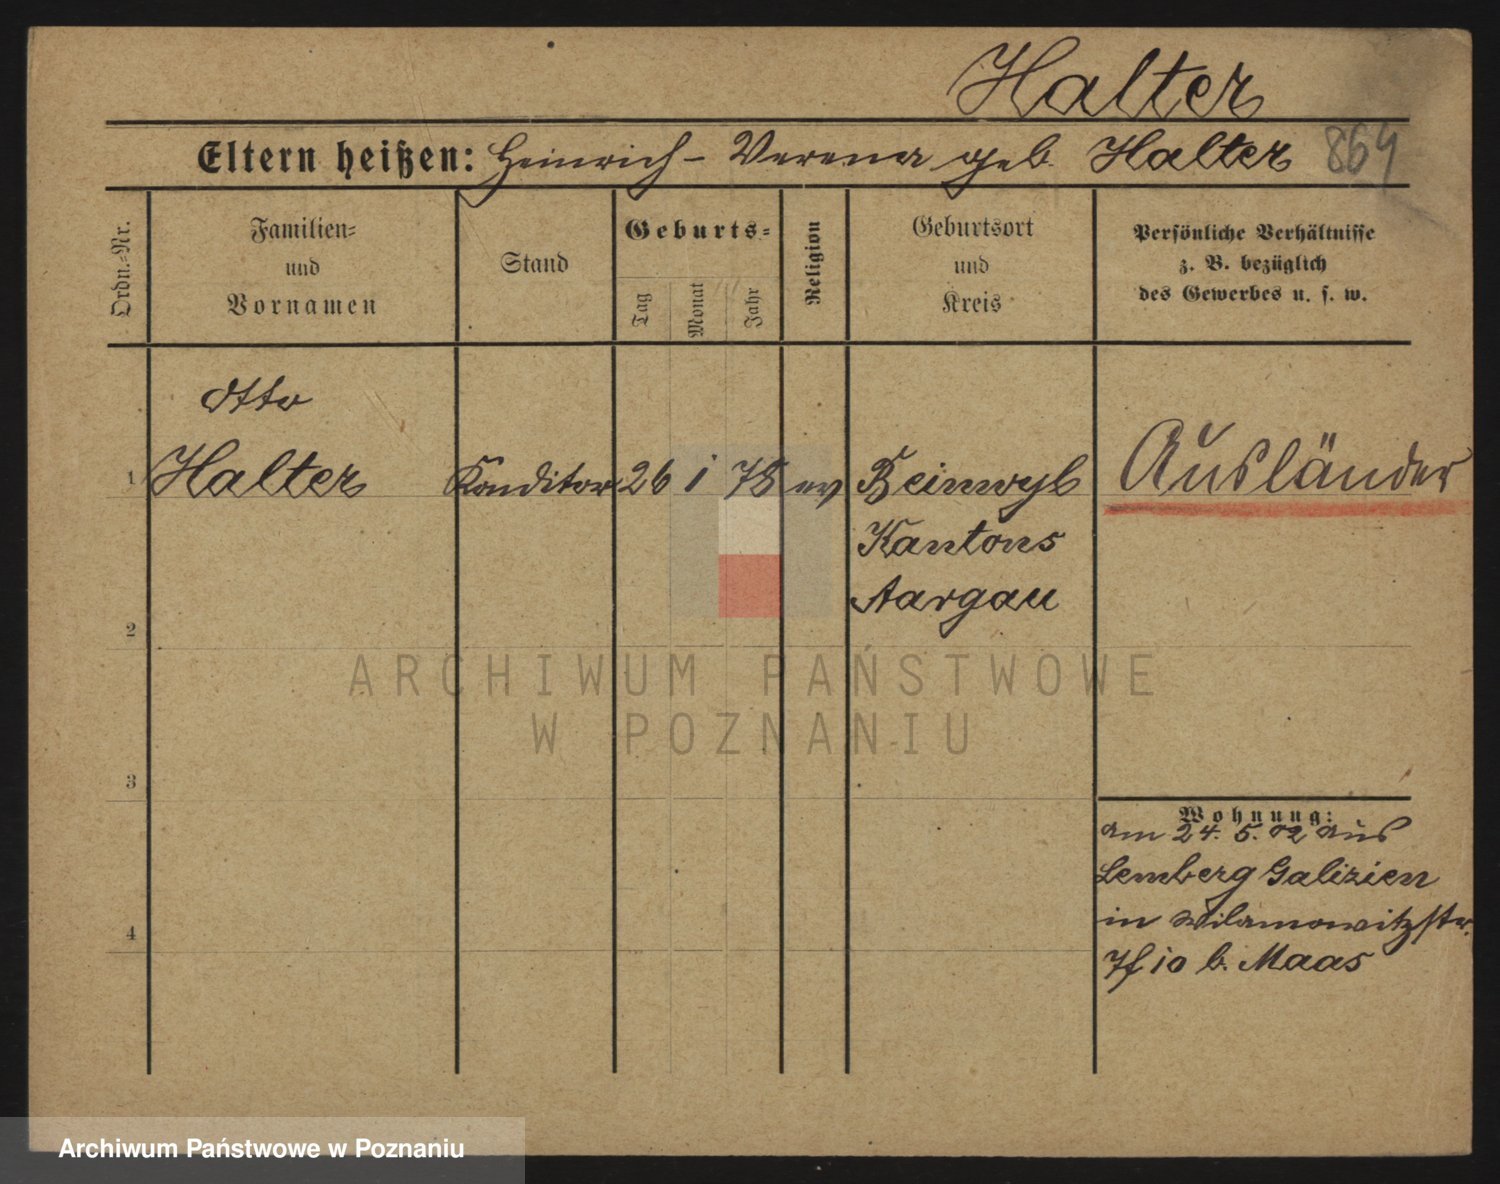 Halter
Eltern heißen: Heinrich - Verena geb. Halter 864
Ordn.-Nr.
Familien-
und
Vornamen
Stand
Geburts-
Tag
Monat
Jahr
Religion
Geburtsort
und
Kreis
Persönliche Verhältnisse
z. B. bezüglich
des Gewerbes u. s. w.
Otto
1 Halter Konditor 26 1 78 ev Beinwyl Ausländer
Kantons
Aargau
2
3
4
Wohnung:
am 24. 5. 02 aus
Lemberg Galizien
in Wilamowitzstr.
10 b. Maas
ARCHIWUM PAŃSTWOWE
W POZNANIU
Archiwum Państwowe w Poznaniu